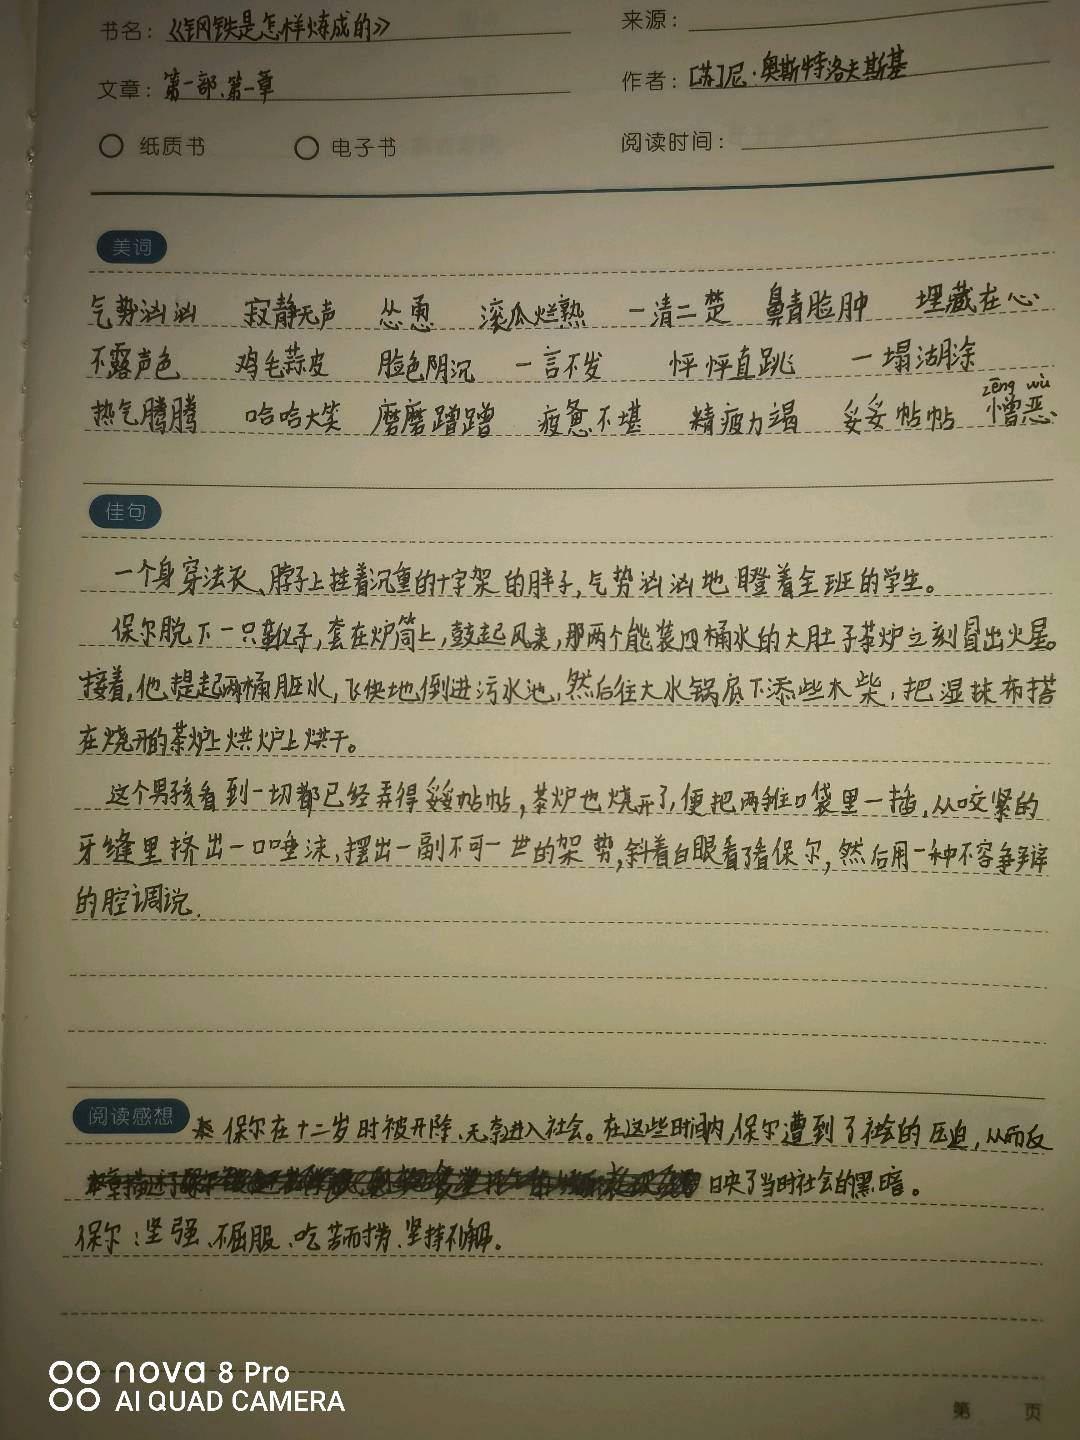 书名：《钢铁是怎样炼成的》 来源：
文章：第一部.第一章 作者：[苏]尼·奥斯特洛夫斯基
纸质书 电子书 阅读时间：
美词
气势汹汹 寂静无声 怂恿 滚瓜烂熟 一清二楚 鼻青脸肿 埋藏在心
不露声色 鸡毛蒜皮 脸色阴沉 一言不发 怦怦直跳 一塌湖涂
zēng wù
热气腾腾 哈哈大笑 磨磨蹭蹭 疲惫不堪 精疲力竭 妥妥帖帖 憎恶
佳句
一个身穿法衣、脖子上挂着沉重的十字架的胖子,气势汹汹地瞪着全班的学生。
保尔脱下一只靴子,套在炉筒上,鼓起风来,那两个能装四桶水的大肚子茶炉立刻冒出火星。
接着,他提起两桶脏水,飞快地倒进污水池,然后往大水锅底下添些木柴,把湿抹布搭
在烧开的茶炉上烘炉上烘干。
这个男孩看到一切都已经弄得妥妥帖帖,茶炉也烧开了,便把两手往口袋里一插,从咬紧的
牙缝里挤出一口唾沫,摆出一副不可一世的架势,斜着白眼看了看保尔,然后用一种不容争辩
的腔调说.
阅读感想
保尔在十二岁时被开除、无奈进入社会。在这些时间内,保尔遭到了社会的压迫,从而反
映了当时社会的黑暗。
保尔:坚强、不屈服、吃苦而劳、坚持不懈。
nova 8 Pro
AI QUAD CAMERA
第 页